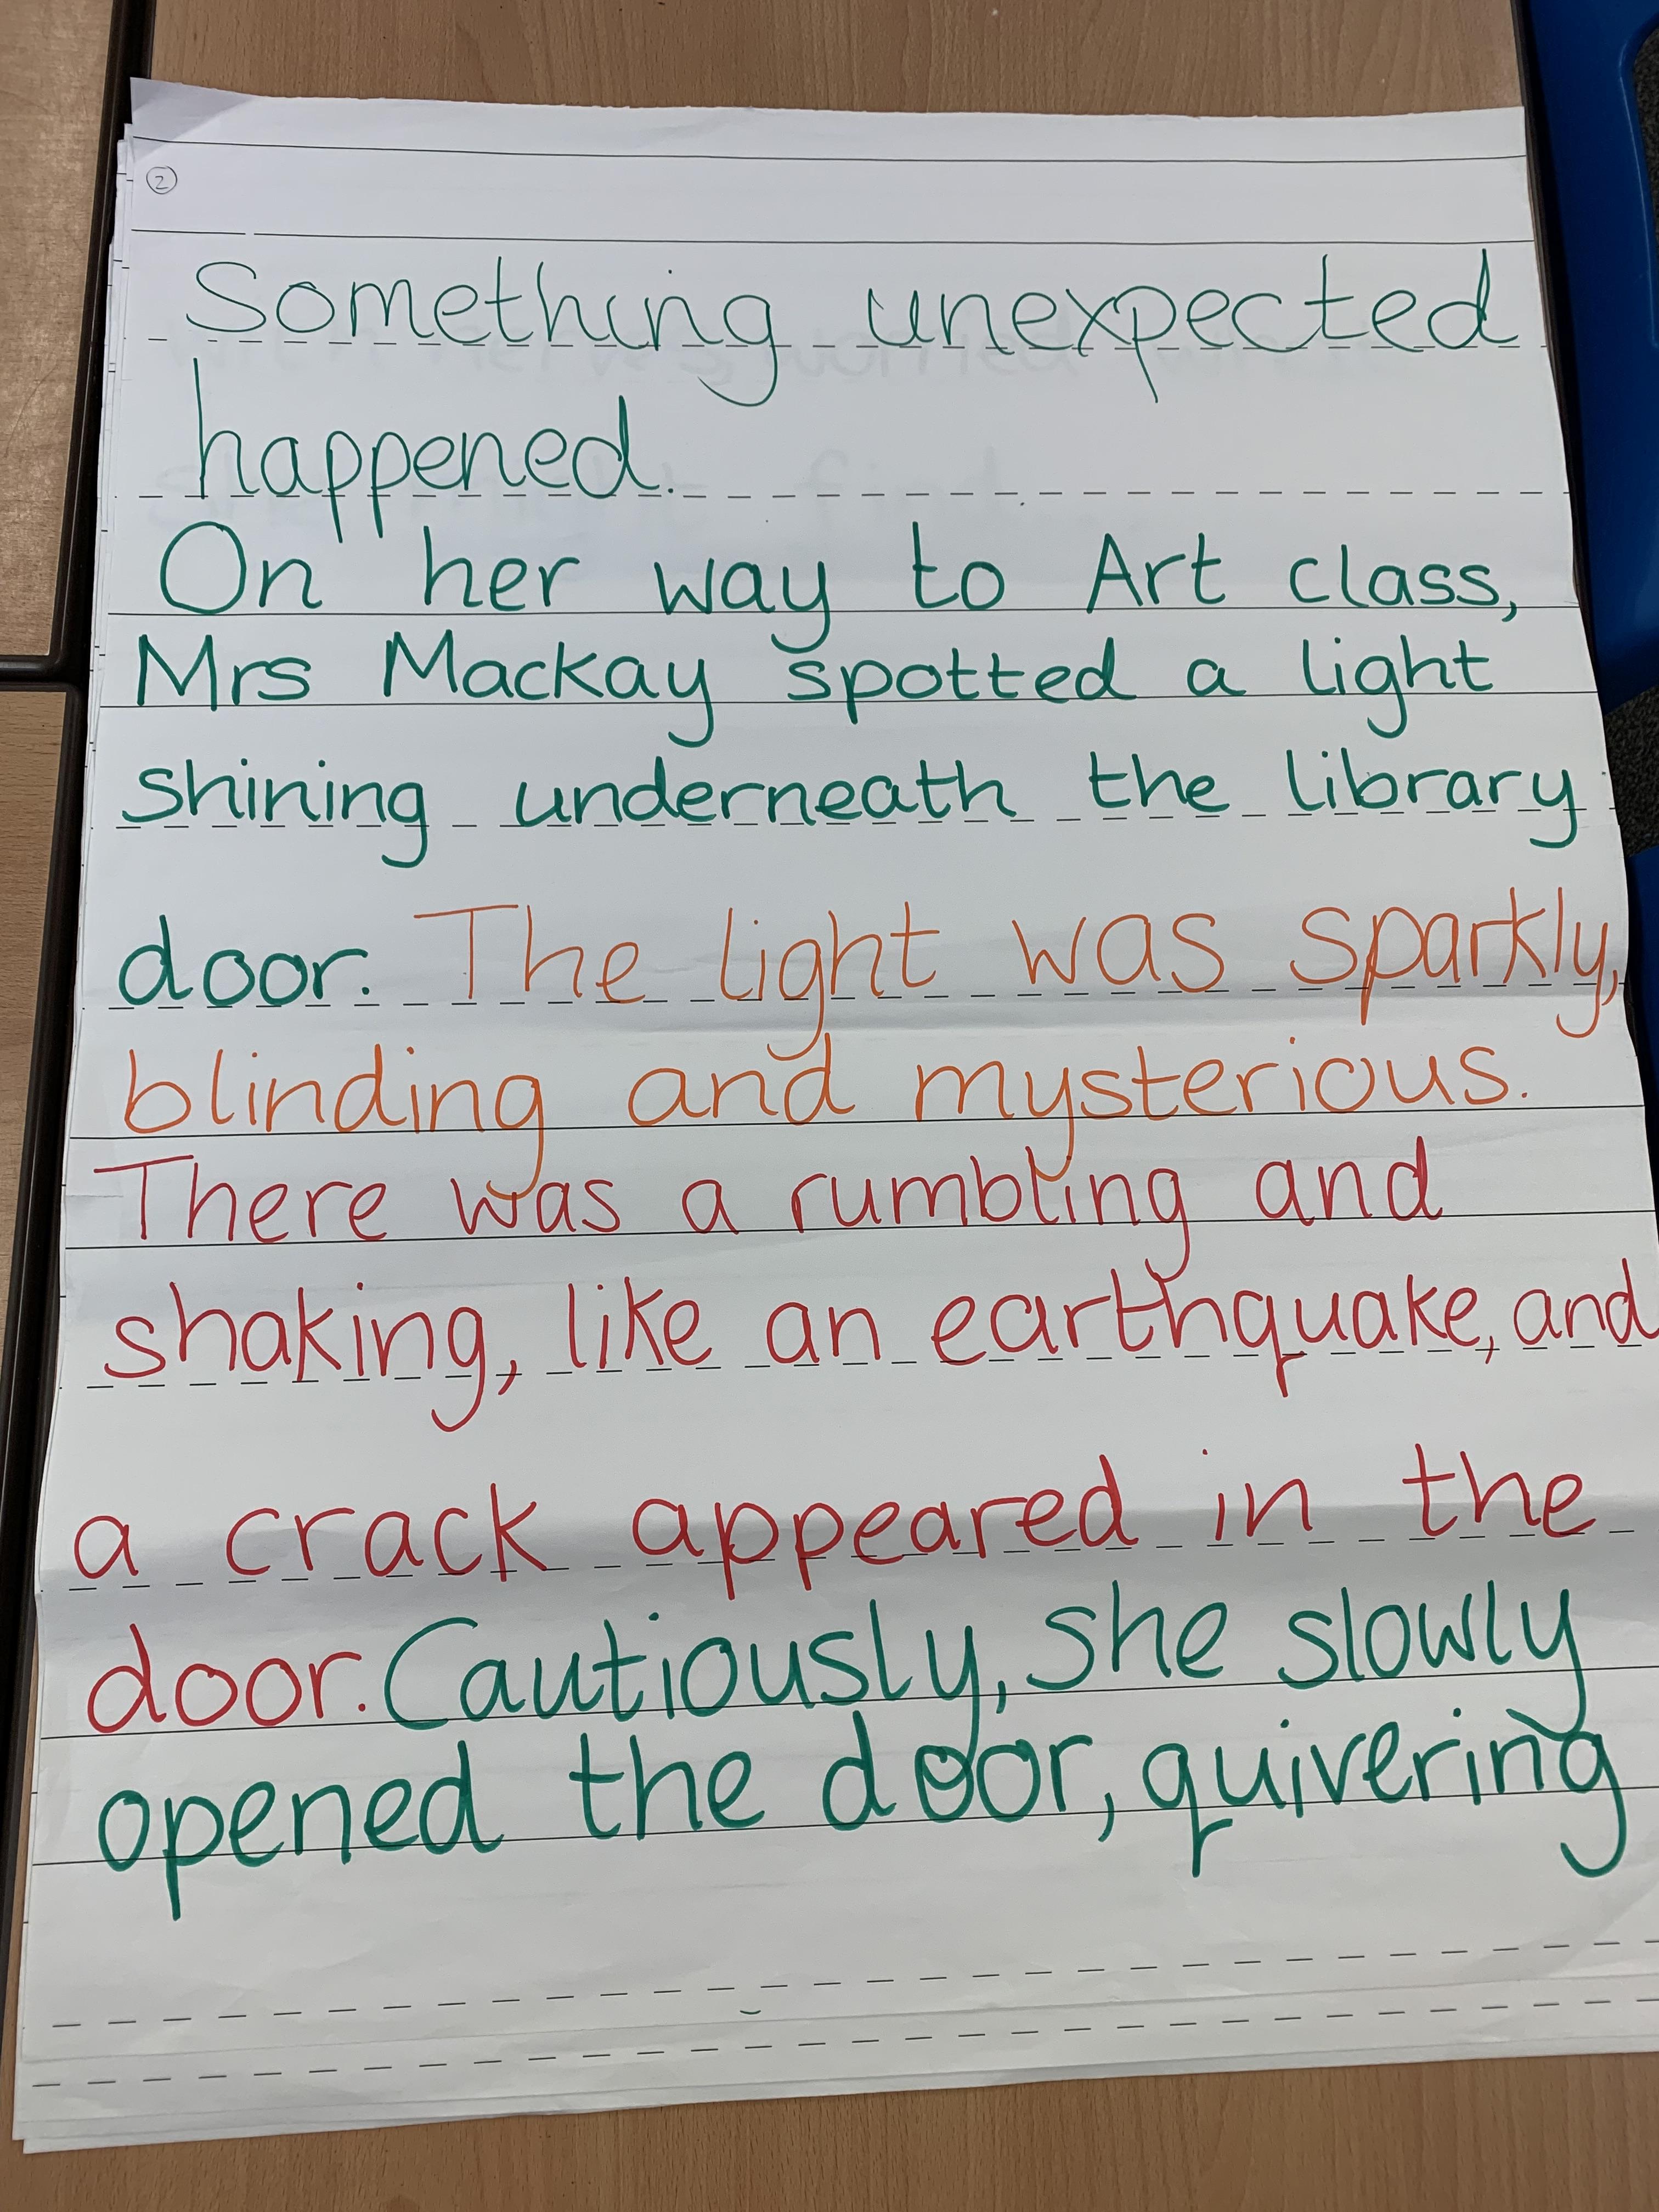 2
Something unexpected
happened.
On her way to Art class,
Mrs Mackay spotted a light
shining underneath the library
door. The light was sparkly,
blinding and mysterious.
There was a rumbling and
shaking, like an earthquake, and
a crack appeared in the
door. Cautiously, she slowly
opened the door, quivering